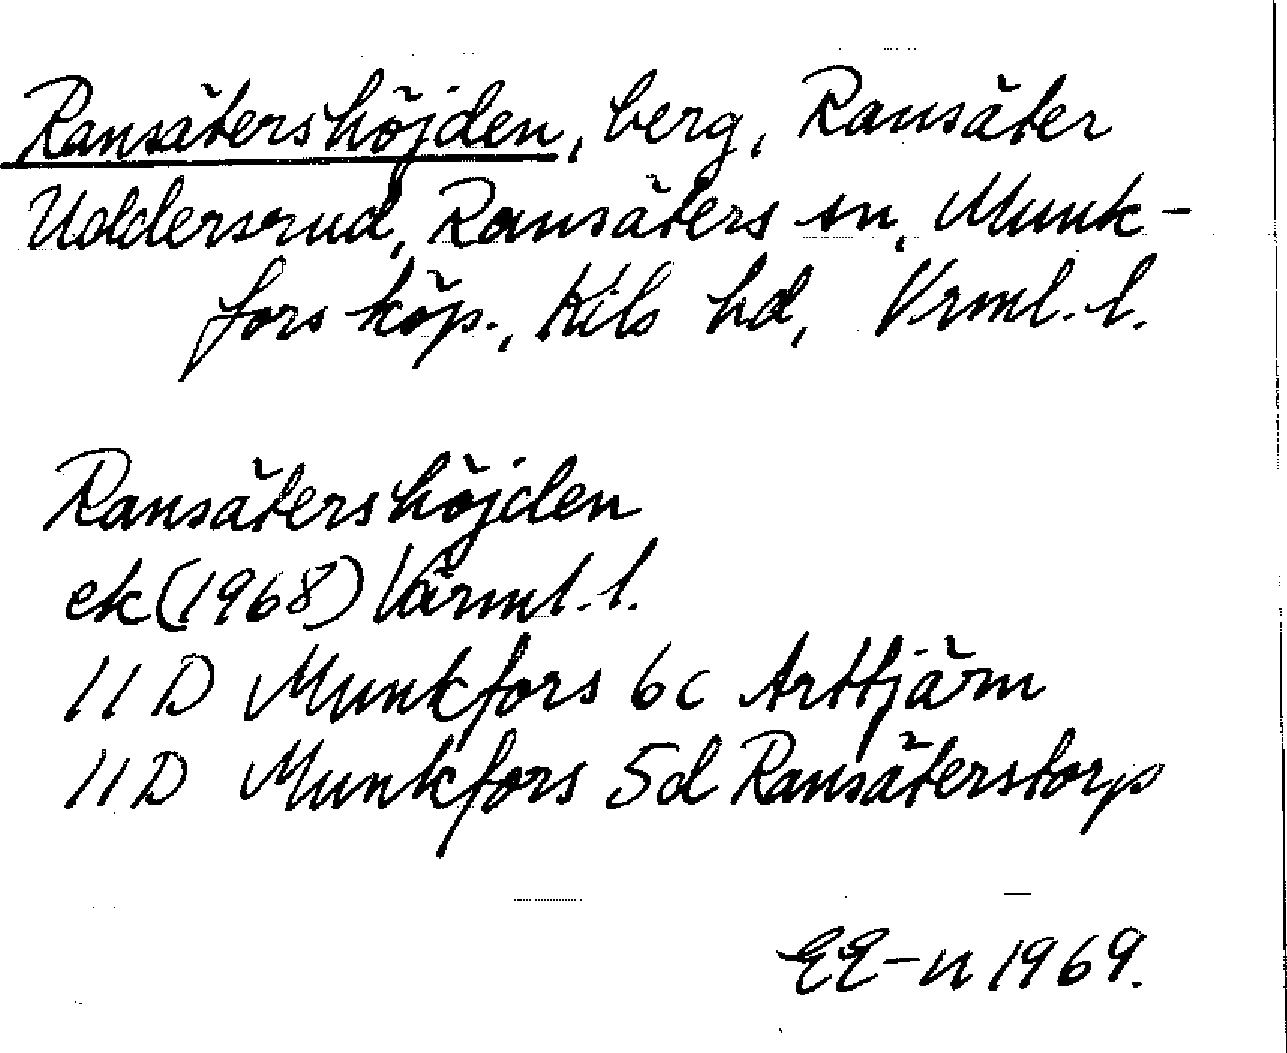 Ransätershöjden, berg, Ransäter
Uddersrud, Ransäters sn, Munk-
fors köp., Kils hd, Vrml. l.
Ransätershöjden
ek (1968) Värml. l.
11 D Munkfors 6c Arttjärn
11 D Munkfors 5d Ransäterstorp
EE-n 1969.